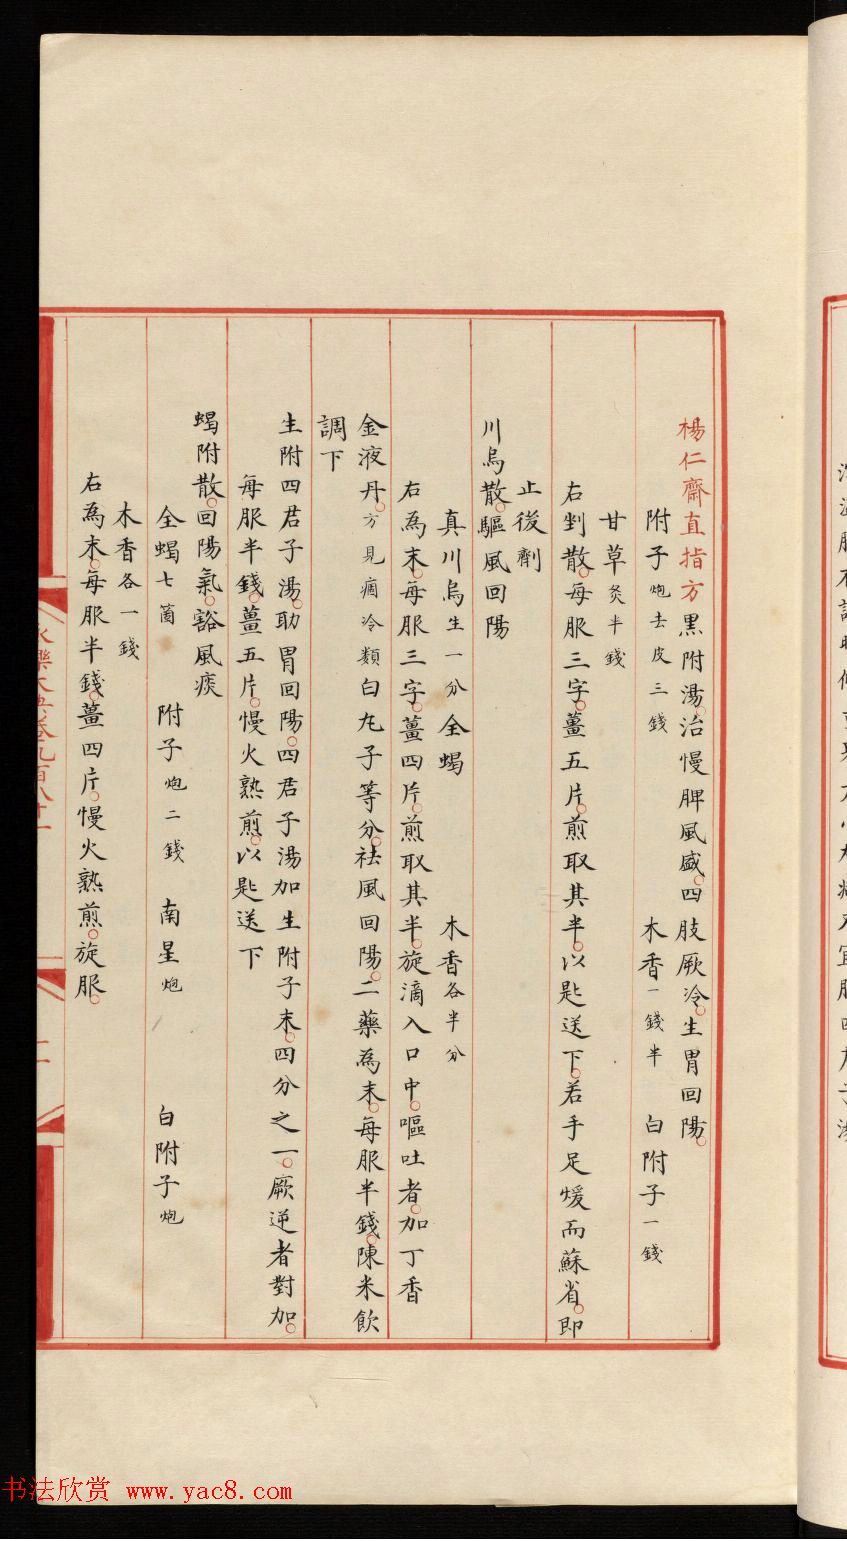 楊仁齋直指方黑附湯。治慢脾風盛。四肢厥冷。生胃回陽。
附子炮去皮三錢 木香一錢半 白附子一錢
甘草炙半錢
右剉散。每服三字。薑五片。煎取其半。以匙送下。若手足煖而蘇省。即
止後劑
川烏散。驅風回陽
真川烏生一分 全蝎 木香各半分
右為末。每服三字。薑四片。煎取其半。旋滴入口中。嘔吐者。加丁香
金液丹。方見痼冷類 白丸子等分。祛風回陽。二藥為末。每服半錢。陳米飲
調下
生附四君子湯。助胃回陽。四君子湯加生附子末。四分之一。厥逆者對加。
每服半錢。薑五片。慢火熟煎。以匙送下
蝎附散。回陽氣。豁風痰
全蝎七箇 附子炮二錢 南星炮 白附子炮
木香各一錢
右為末。每服半錢。薑四片。慢火熟煎。旋服。
永樂大典卷九百八十一
二
书法欣赏 www.yac8.com